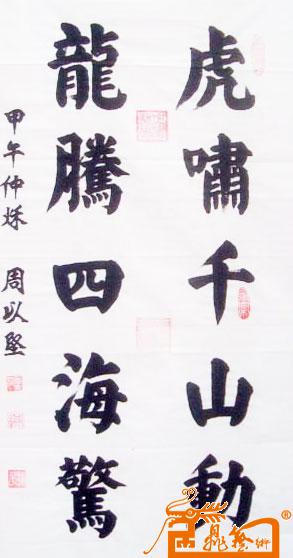 虎嘯千山動
龍騰四海驚
甲午仲秌 周以堅